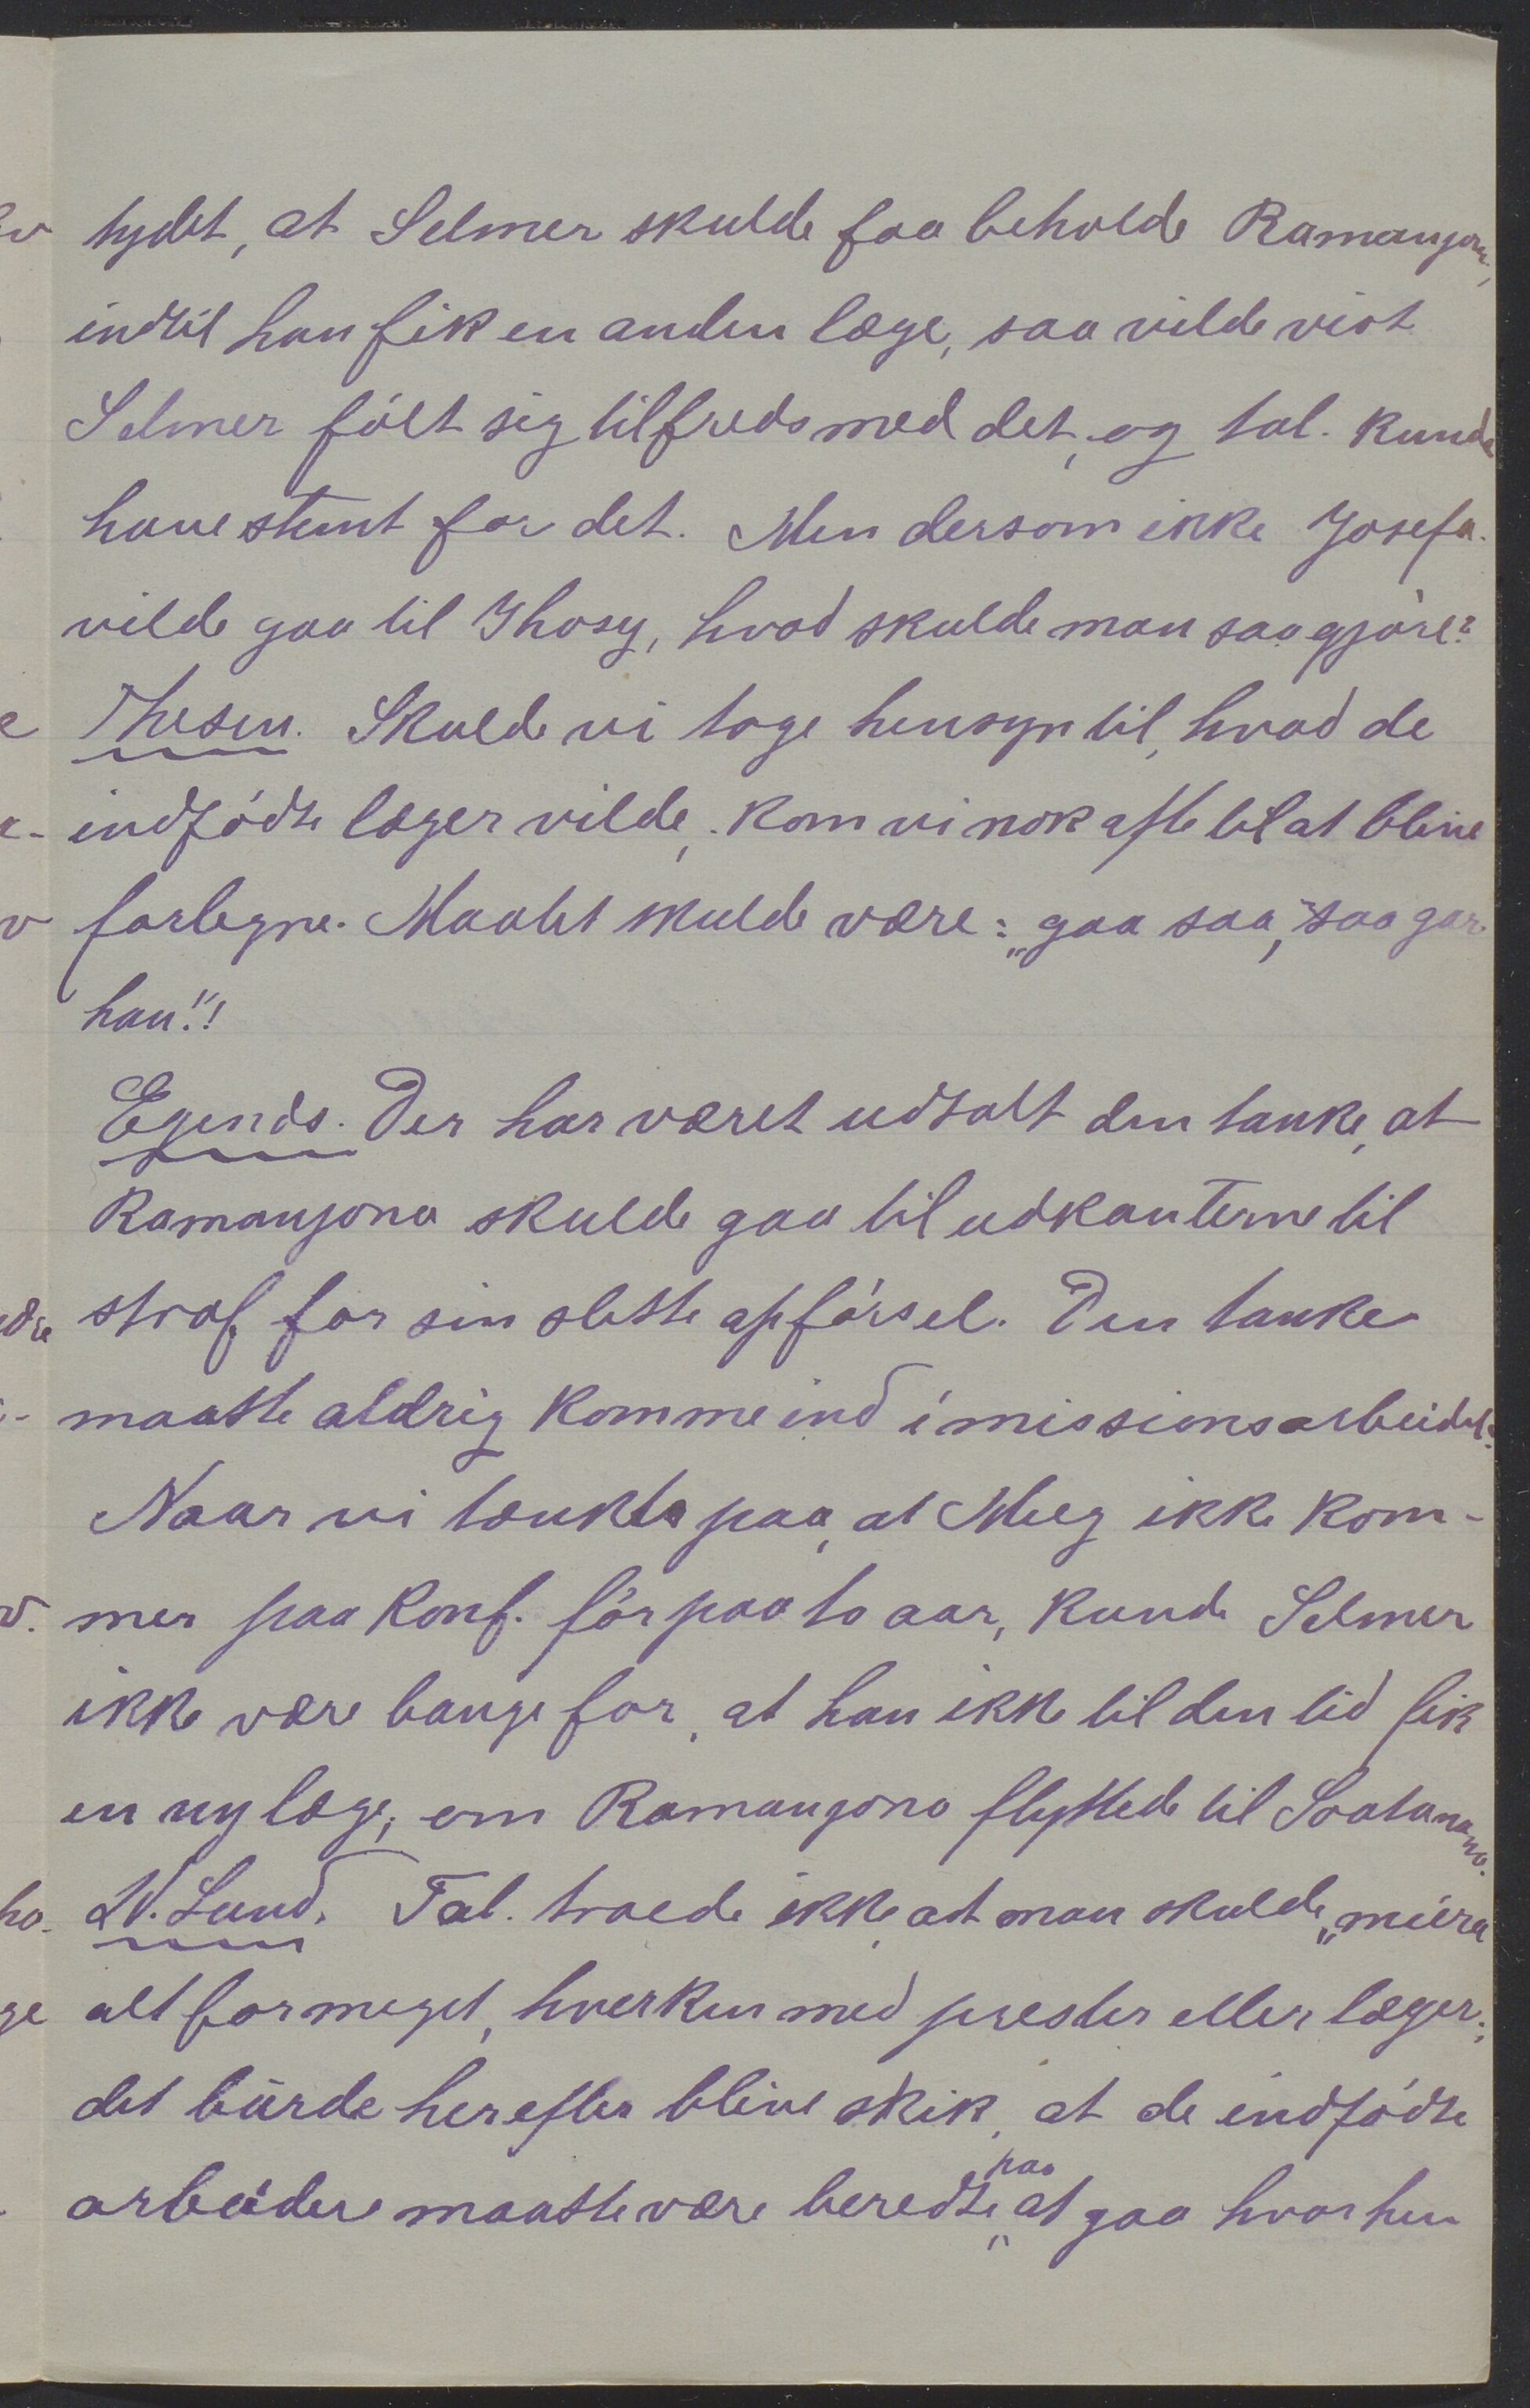 tydet, at Selmer skulde faa beholde Ramanjona,
indtil han fik en anden læge, saa vilde vist
Selmer følt sig tilfreds med det, og tal. kunde
have stemt for det. Men dersom ikke Josefa.
vilde gaa til Ihosy, hvad skulde man saa gjøre?
Thesen. Skulde vi tage hensyn til, hvad de
indfødte læger vilde, kom vi nok ofte til at blive
forlegne. Maalet skulde være: „gaa saa," saa gaar
han!"!
Egends. Der har været udtalt den tanke, at
Ramanjona skulde gaa til udkanterne til
straf for sin slette opførsel. Den tanke
maatte aldrig komme ind i missionsarbeidet.
Naar vi tænkte paa, at Meeg ikke kom-
mer paa konf. før paa to aar, kunde Selmer
ikke være bange for, at han ikke til den tid fik
en ny læge, om Ramanjona flyttede til Soatanana.
W. Lund. Tal. troede ikke, at man skulde „miera
alt for meget, hverken med prester eller læger;
det burde herefter blive skik, at de indfødte
arbeidere maatte være beredte paa at gaa hvorhen